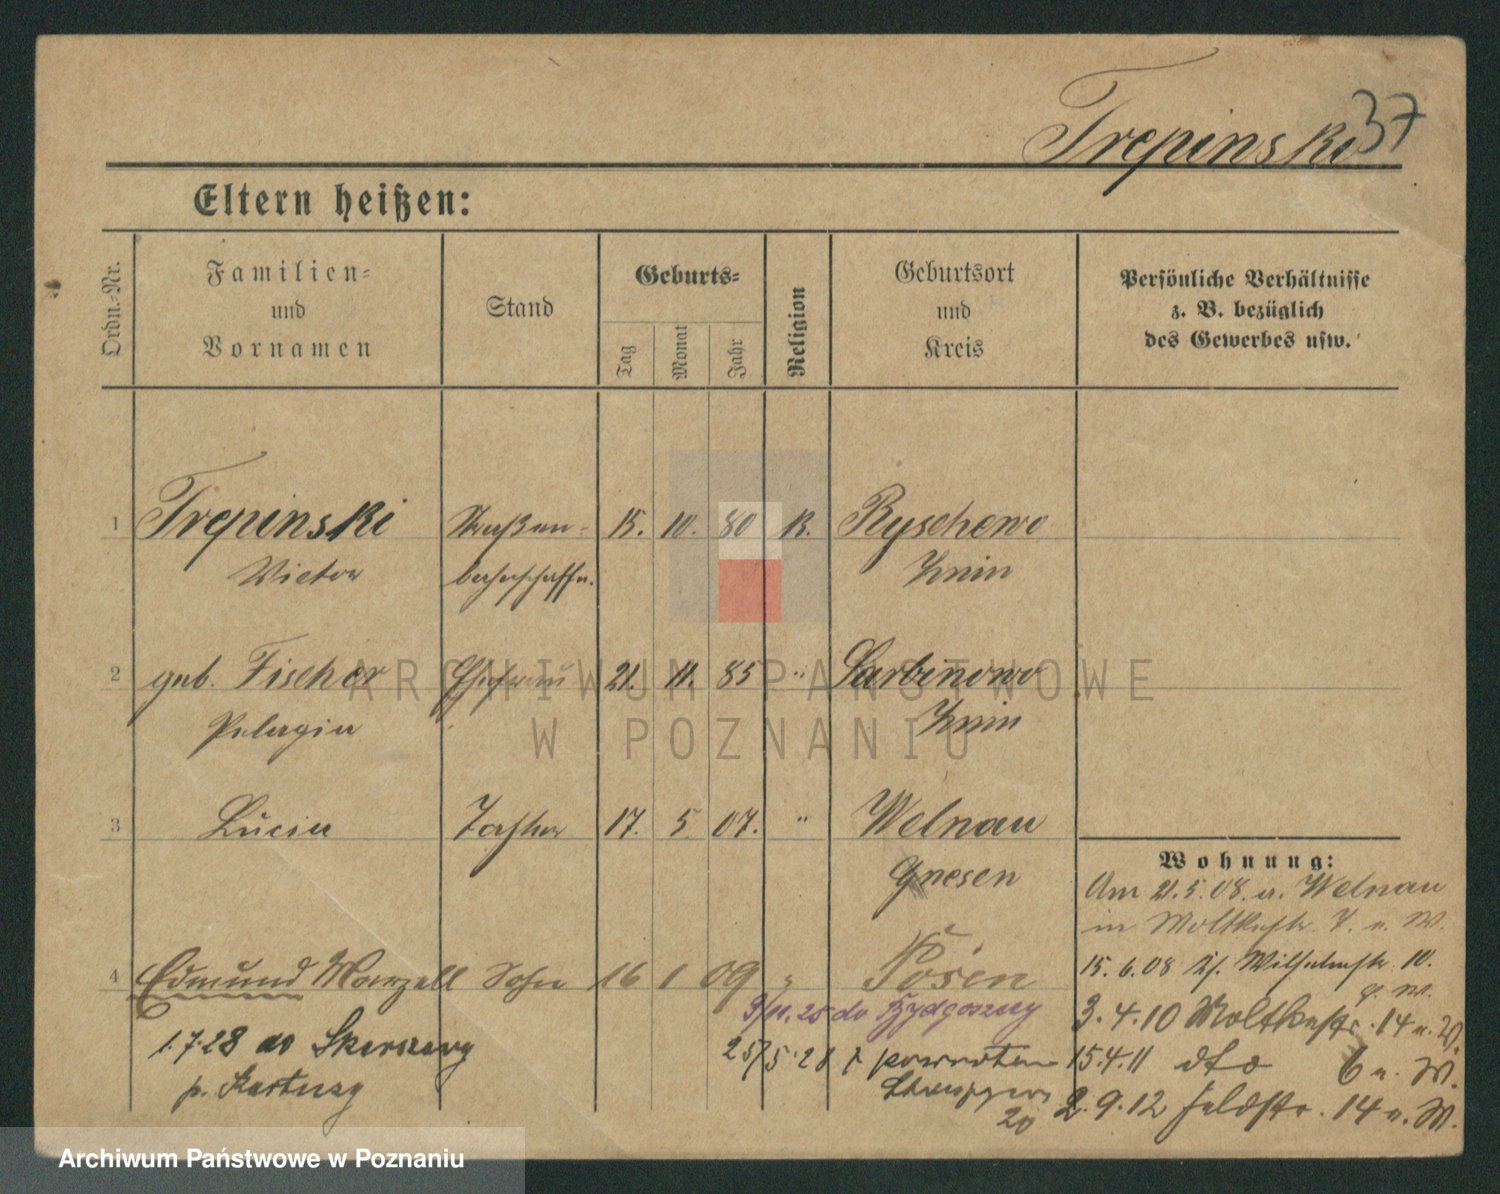 Trepinski 37
Eltern heißen:
Ordn.-Nr.
Familien-
und
Vornamen
Stand
Geburts-
Tag
Monat
Jahr
Religion
Geburtsort
und
Kreis
Persönliche Verhältnisse
z. B. bezüglich
des Gewerbes usw.
1 Trepinski Straßen- 15. 10. 80 K. Ryschewo
Victor bahnschaffn. Znin
2 geb. Fischer Ehefrau 21. 11. 85 " Sarbinowo
Pelagia Znin
3 Lucia Tochter 17. 5. 07. " Welnau
Gnesen
Wohnung:
Am 21.5.08. a. Welnau
in Moltkestr. 7. n. W.
4 Edmund Marzell Sohn 16 1 09 " Posen
15. 6. 08 Wilhelmstr. 10.
3. 4. 10 Moltkestr. 14 n. W.
9/11. 25 do Bydgoszczy
1.7.28 do
p. Kartuzy
25/5 28 z powrotem
20
15.4.11 dto 6 n. W.
2.9.12 Feldstr. 14 n. W.
ARCHIWUM PAŃSTWOWE
W POZNANIU
Archiwum Państwowe w Poznaniu